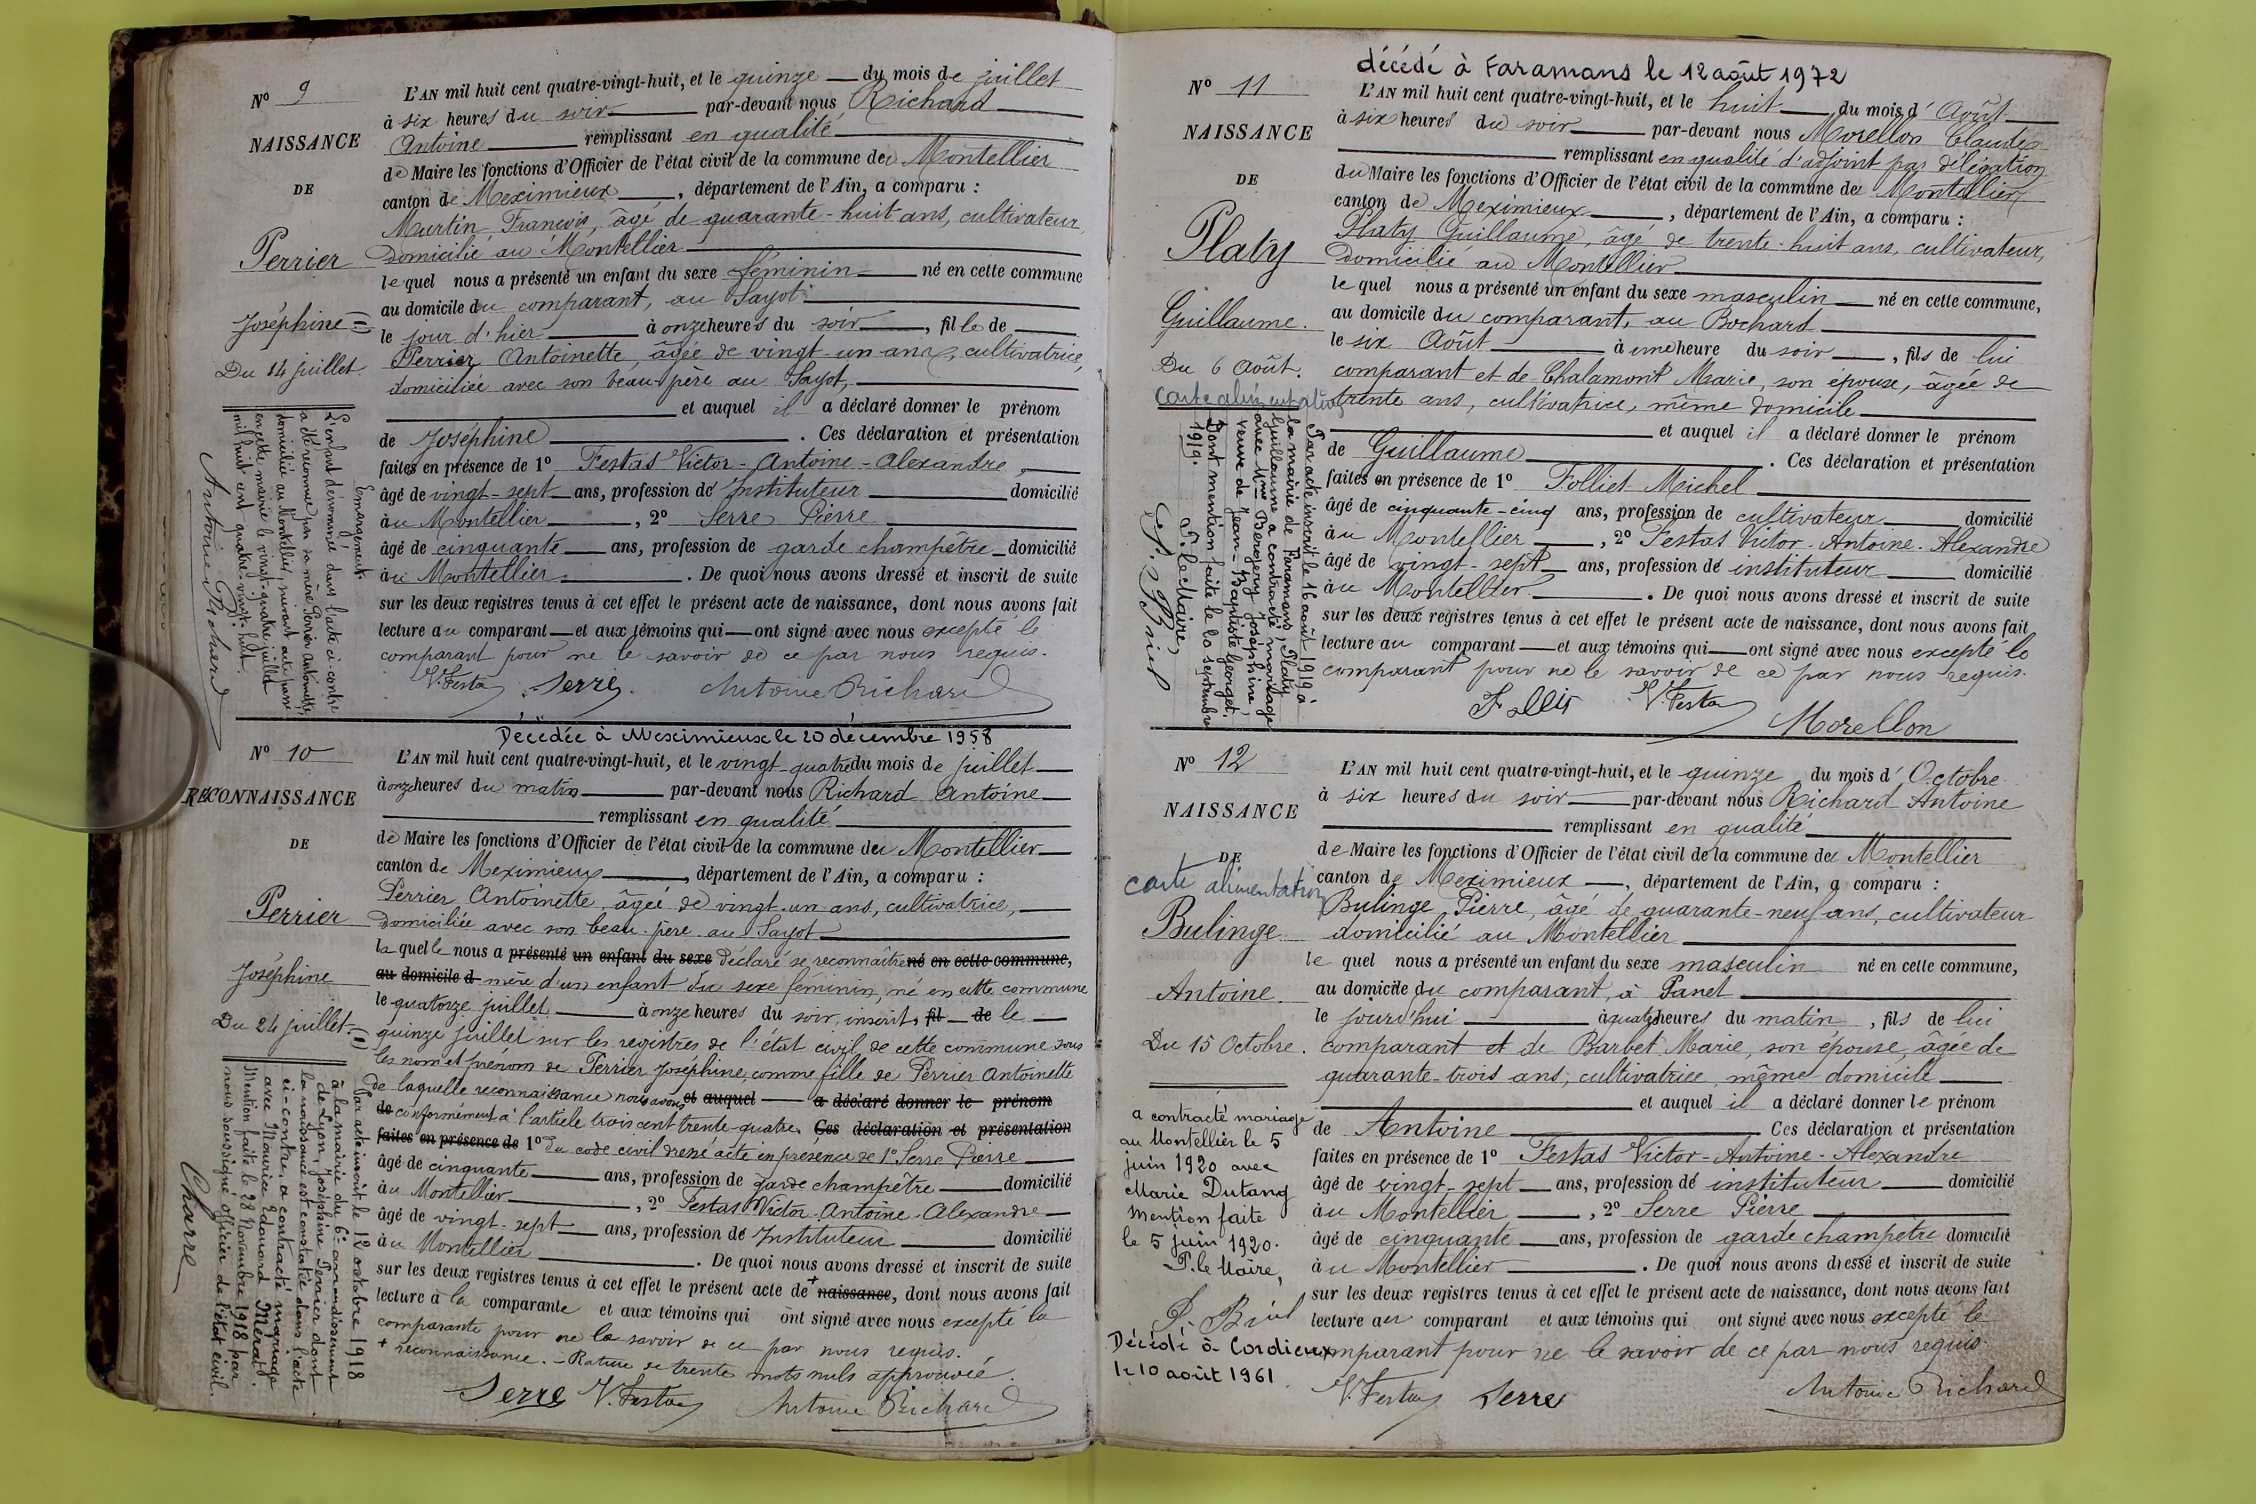 N° 9
NAISSANCE
DE
Perrier
Joséphine
Du 14 juillet
L'AN mil huit cent quatre-vingt-huit, et le quinze du mois de juillet
à six heures du soir par-devant nous Richard
Antoine remplissant en qualité
de Maire les fonctions d'Officier de l'état civil de la commune de Montellier
canton de Meximieux, département de l'Ain, a comparu :
Murtin François, âgé de quarante-huit ans, cultivateur,
domicilié au Montellier
le quel nous a présenté un enfant du sexe féminin né en cette commune
au domicile du comparant, au Sayot
le jour d'hier à onze heures du soir, fille de
Perrier Antoinette, âgée de vingt-un ans, cultivatrice,
domiciliée avec son beau-père au Sayot,
et auquel il a déclaré donner le prénom
de Joséphine. Ces déclaration et présentation
faites en présence de 1° Festas Victor-Antoine-Alexandre,
âgé de vingt-sept ans, profession de Instituteur domicilié
au Montellier, 2° Serre Pierre
âgé de cinquante ans, profession de garde champêtre domicilié
au Montellier. De quoi nous avons dressé et inscrit de suite
sur les deux registres tenus à cet effet le présent acte de naissance, dont nous avons fait
lecture au comparant et aux témoins qui ont signé avec nous excepté le
comparant pour ne le savoir de ce par nous requis.
V. Festas Serre Antoine Richard
Emargement
L'enfant dénommée dans l'acte ci-contre
a été reconnue par sa mère Perrier Antoinette,
domiciliée au Montellier, suivant acte passé
en cette mairie le vingt-quatre juillet
mil huit cent quatre-vingt-huit.
Antoine Richard
N° 10
RECONNAISSANCE
DE
Perrier
Joséphine
Du 24 juillet
Décédée à Meximieux le 20 décembre 1958
L'AN mil huit cent quatre-vingt-huit, et le vingt-quatre du mois de juillet
à onze heures du matin par-devant nous Richard Antoine
remplissant en qualité
de Maire les fonctions d'Officier de l'état civil de la commune de Montellier
canton de Meximieux, département de l'Ain, a comparu :
Perrier Antoinette, âgée de vingt-un ans, cultivatrice,
domiciliée avec son beau-père au Sayot
la quelle nous a présenté un enfant du sexe déclaré se reconnaître né en cette commune,
au domicile d mère d'un enfant du sexe féminin, né en cette commune
le quatorze juillet à onze heures du soir, inscrit, fil de le
quinze juillet sur les registres de l'état civil de cette commune sous
les nom et prénom de Perrier Joséphine, comme fille de Perrier Antoinette
De laquelle reconnaissance nous avons et auquel a déclaré donner le prénom
de conformément à l'article trois cent trente-quatre Ces déclaration et présentation
faites en présence de 1° du code civil dressé acte en présence de 1° Serre Pierre
âgé de cinquante ans, profession de garde champêtre domicilié
au Montellier, 2° Festas Victor-Antoine-Alexandre
âgé de vingt-sept ans, profession de Instituteur domicilié
au Montellier. De quoi nous avons dressé et inscrit de suite
sur les deux registres tenus à cet effet le présent acte de + naissance, dont nous avons fait
lecture à la comparante et aux témoins qui ont signé avec nous excepté la
comparante pour ne le savoir de ce par nous requis.
+ reconnaissance. - Rature de trente mots nuls approuvée.
Serre V. Festas Antoine Richard
Par acte inscrit le 12 octobre 1918
à la mairie du 6e arrondissement
de Lyon, Joséphine Perrier dont
la naissance est constatée dans l'acte
ci-contre, a contracté mariage
avec Maurice Edouard Mérat.
Mention faite le 28 Novembre 1918 par
nous soussigné officier de l'état civil
Charre
N° 11
NAISSANCE
DE
Platy
Guillaume.
Du 6 Août.
Carte alimentation
décédé à Faramans le 12 août 1972
L'AN mil huit cent quatre-vingt-huit, et le huit du mois d'Août
à six heures du soir par-devant nous Morellon Claude
remplissant en qualité d'adjoint par délégation
du Maire les fonctions d'Officier de l'état civil de la commune de Montellier
canton de Meximieux, département de l'Ain, a comparu :
Platy Guillaume, âgé de trente-huit ans, cultivateur,
domicilié au Montellier
le quel nous a présenté un enfant du sexe masculin né en cette commune,
au domicile du comparant, au Bochard
le six Août à une heure du soir, fils de lui
comparant et de Chalamont Marie, son épouse, âgée de
trente ans, cultivatrice, même domicile
et auquel il a déclaré donner le prénom
de Guillaume. Ces déclaration et présentation
faites en présence de 1° Folliet Michel
âgé de cinquante-cinq ans, profession de cultivateur domicilié
au Montellier, 2° Festas Victor-Antoine-Alexandre
âgé de vingt-sept ans, profession de instituteur domicilié
au Montellier. De quoi nous avons dressé et inscrit de suite
sur les deux registres tenus à cet effet le présent acte de naissance, dont nous avons fait
lecture au comparant et aux témoins qui ont signé avec nous excepté le
comparant pour ne le savoir de ce par nous requis.
V. Festas
Morellon
Par acte inscrit le 16 août 1919 à
la mairie de Faramans, Platy
Guillaume a contracté mariage
avec Mme Joséphine,
veuve de Jean-Baptiste Georget.
Dont mention faite le 10 septembre
1919.
P. le Maire,
N° 12
NAISSANCE
DE
carte alimentation
Bulinge
Antoine.
Du 15 Octobre.
L'AN mil huit cent quatre-vingt-huit, et le quinze du mois d'Octobre
à six heures du soir par-devant nous Richard Antoine
remplissant en qualité
de Maire les fonctions d'Officier de l'état civil de la commune de Montellier
canton de Meximieux, département de l'Ain, a comparu :
Bulinge Pierre, âgé de quarante-neuf ans, cultivateur
domicilié au Montellier
le quel nous a présenté un enfant du sexe masculin né en cette commune,
au domicile du comparant, à Panet
le jourd'hui à quatre heures du matin, fils de lui
comparant et de Barbet Marie, son épouse, âgée de
quarante-trois ans, cultivatrice, même domicile
et auquel il a déclaré donner le prénom
de Antoine Ces déclaration et présentation
faites en présence de 1° Festas Victor-Antoine-Alexandre
âgé de vingt-sept ans, profession de instituteur domicilié
au Montellier, 2° Serre Pierre
âgé de cinquante ans, profession de garde champetre domicilié
au Montellier. De quoi nous avons dressé et inscrit de suite
sur les deux registres tenus à cet effet le présent acte de naissance, dont nous avons fait
lecture au comparant et aux témoins qui ont signé avec nous excepté le
comparant pour ne le savoir de ce par nous requis.
V. Festas Serre Antoine Richard
a contracté mariage
au Montellier le 5
juin 1920 avec
Marie Dutang
Mention faite
le 5 juin 1920.
P. le Maire,
Décédé à Cordieux
le 10 août 1961